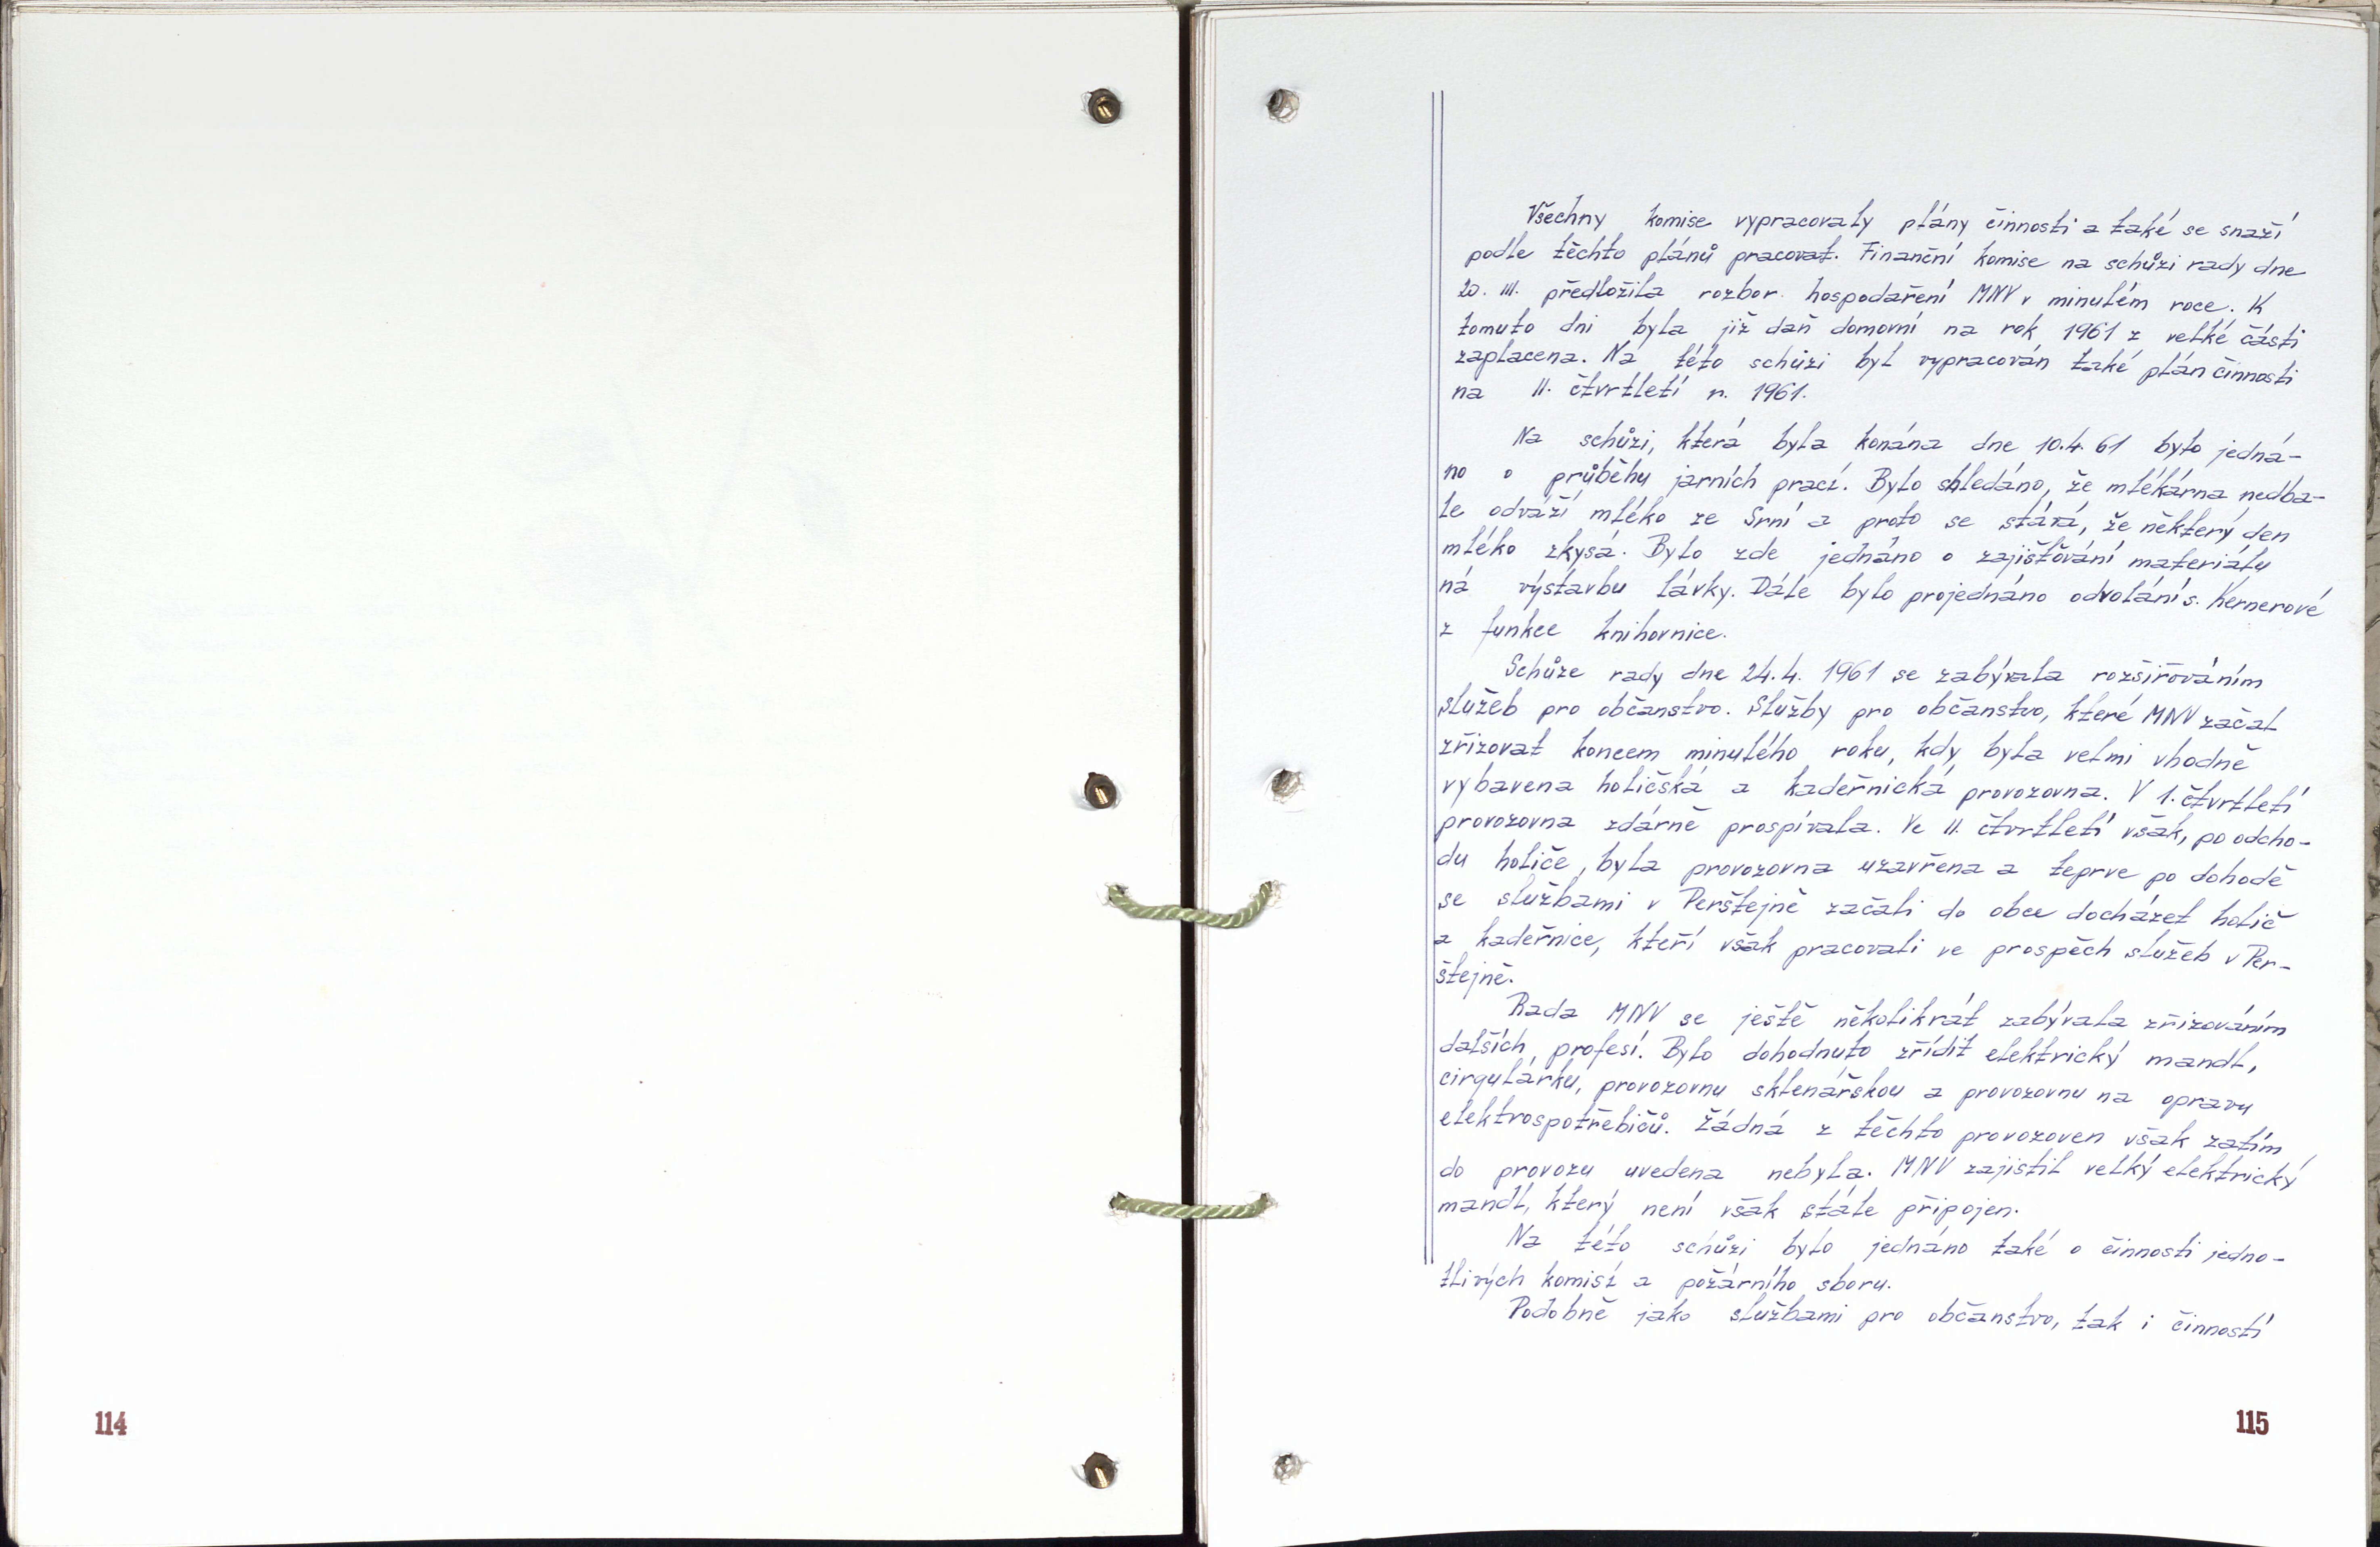 Všechny komise vypracovaly plány činnosti a také se snaží
podle těchto plánů pracovat. Finanční komise na schůzi rady dne
20. III. předložila rozbor hospodaření MNV v minulém roce. K
tomuto dni byla již daň domovní na rok 1961 z velké části
zaplacena. Na této schůzi byl vypracován také plán činnosti
na II. čtvrtletí r. 1961.
Na schůzi, která byla konána dne 10.4.61 bylo jedná-
no o průběhu jarních prací. Bylo shledáno, že mlékárna nedba-
le odváží mléko ze Srní a proto se stává, že některý den
mléko zkysá. Bylo zde jednáno o zajišťování materiálu
ná výstavbu lávky. Dále bylo projednáno odvolání s. Kernerové
z funkce knihovnice.
Schůze rady dne 24.4. 1961 se zabývala rozšiřováním
služeb pro občanstvo. Služby pro občanstvo, které MNV začal
zřizovat koncem minulého roku, kdy byla velmi vhodně
vybavena holičská a kadeřnická provozovna. V 1. čtvrtletí
provozovna zdárně prospívala. Ve II. čtvrtletí však, po odcho-
du holiče, byla provozovna uzavřena a teprve po dohodě
se službami v Perštejně začali do obce docházet holič
a kadeřnice, kteří však pracovali ve prospěch služeb v Per-
štejně.
Rada MNV se ještě několikrát zabývala zřizováním
dalších profesí. Bylo dohodnuto zřídit elektrický mandl,
cirgulárku, provozovnu sklenářskou a provozovnu na opravu
elektrospotřebičů. Žádná z těchto provozoven však zatím
do provozu uvedena nebyla. MNV zajistil velký elektrický
mandl, který není však stále připojen.
Na této schůzi bylo jednáno také o činnosti jedno-
tlivých komisí a požárního sboru.
Podobně jako službami pro občanstvo, tak i činností
114
115